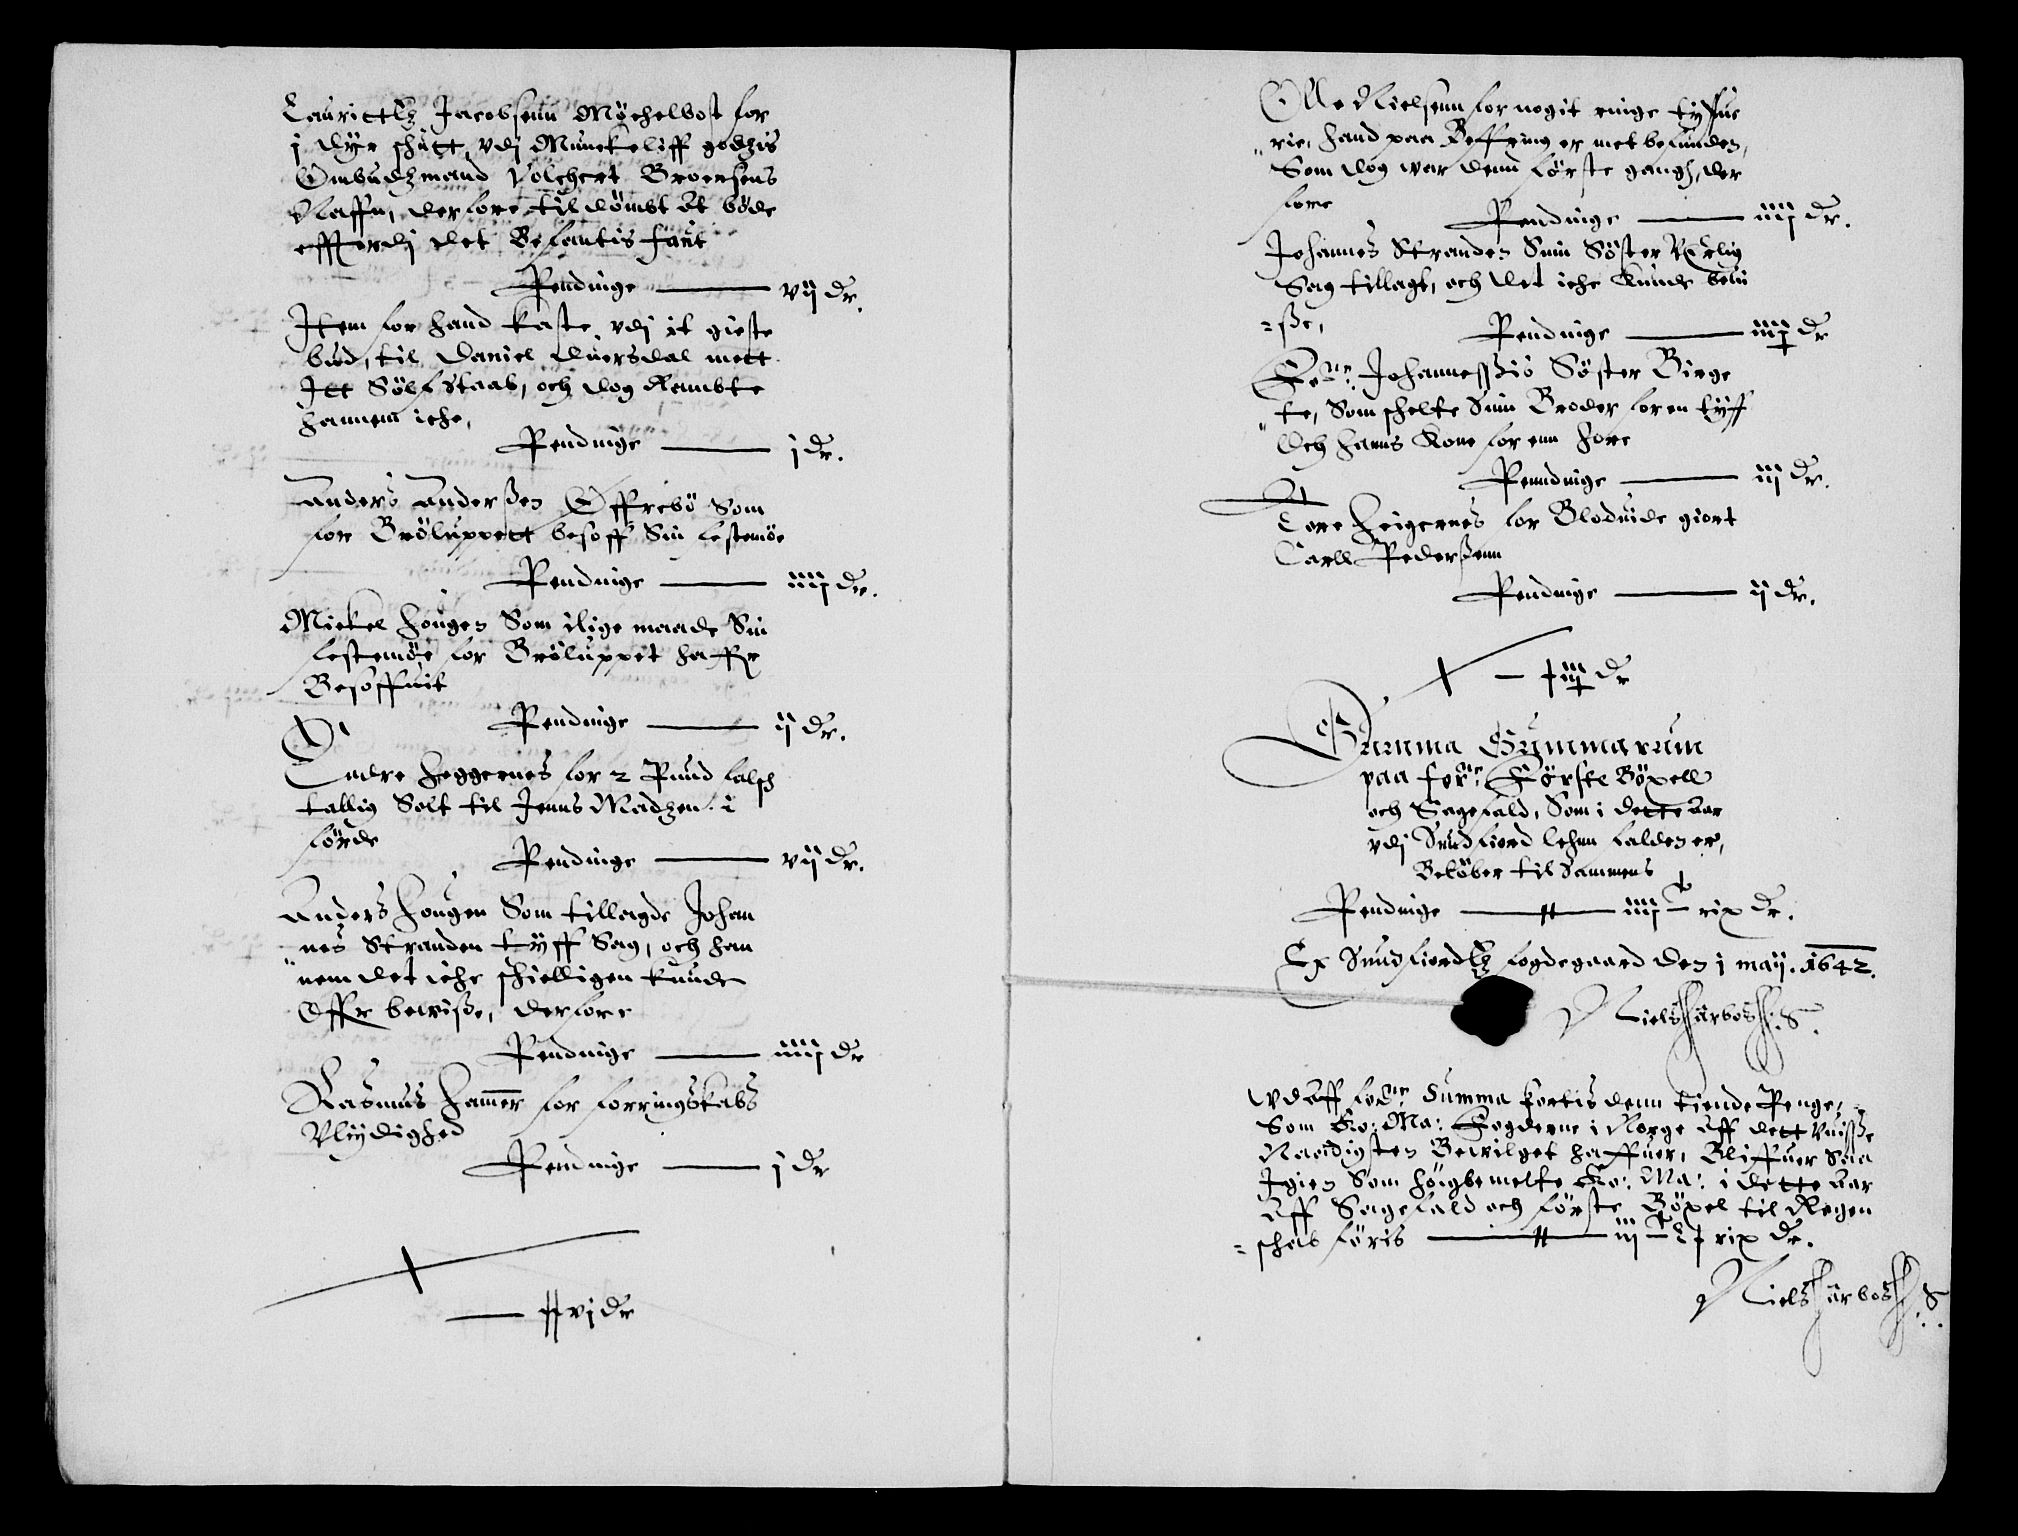 Laurittz Jacobsenn Möchelbost for
j dÿr schütt vdj Munckeliff godzis
Ombudtzmand Volchert Broersens
Naffn, derfore til dömbt at böde
effterdj det Befantis sant
Pendinge — vij dr.
Item for hand kaste vdj it gieste
bud, til Daniel Duersdal mett
Itt Sölfstaab, och dog Rambte
hannem iche,
Pendinge — j dr.
Anders Anderßen Offrebö Som
for Brölluppett besoff Sin festemöe
Pendinge — iiij dr.
Mickel Hougen Som ilige maade Sin
festemöe for Brölluppet haffr
Besoffuit
Pendinge — ij dr.
Endre Heggernes for 2 Pund falsch
tallig Solt til Jenns Madzen i
förde
Pendinge — vij dr.
Anders Hougen Som tillagde Johan
nes Stranden tyff Sag, och han
nem det iche schielligen kunde
Offr beviße, derfore
Pendinge — iiij dr
Rasmus Hamer for forringskabs
Vlÿdighed
Pendinge — j dr
— ##vj dr
Olle Nielsenn for nogit ringe tyffue
rie, hand paa Beffring er met befunden,
Som dog war denn förste gang, der
fore
Pendinge — iiij dr.
Johannes Stranden Sinn Söster Vërlig
Sag tillagt, och det iche kunde bevi
=ße,
Pendinge — iiij dr
For.ne Johanneßis Söster Birge
te, Som schelte Sinn Broder for en tyff
Och hanns Kone for enn Hore
Penndinge — iij dr.
Tore Heigernes for Blodvide giort
Carll Pederßenn
Pendinge — ij dr.
— †iiij dr
Summa Summarum
paa for.ne Förste Böxell
och Sagefald, Som i dette aar
vdj Sundfiord lehnn falden er,
Belöber til Sammens
Pendinge — # — iiij c rix dr.
Ex Sundfiordtz fogdegaard den j maij. 1642.
Niels Harboe S.
Vdaff for.ne Summa kortis denn tiende Penge,
Som Ko: Ma: Fogderne i Norge aff dett visße
Naadigsten Bewilget haffuer, Bliffuer Saa
Igien Som höigbemelte Ko: Ma: i dette aar
Aff Sagefald och förste Böxel til Regen
=schab föris — # — iij c L† rix dr.
Niels Harboe S.